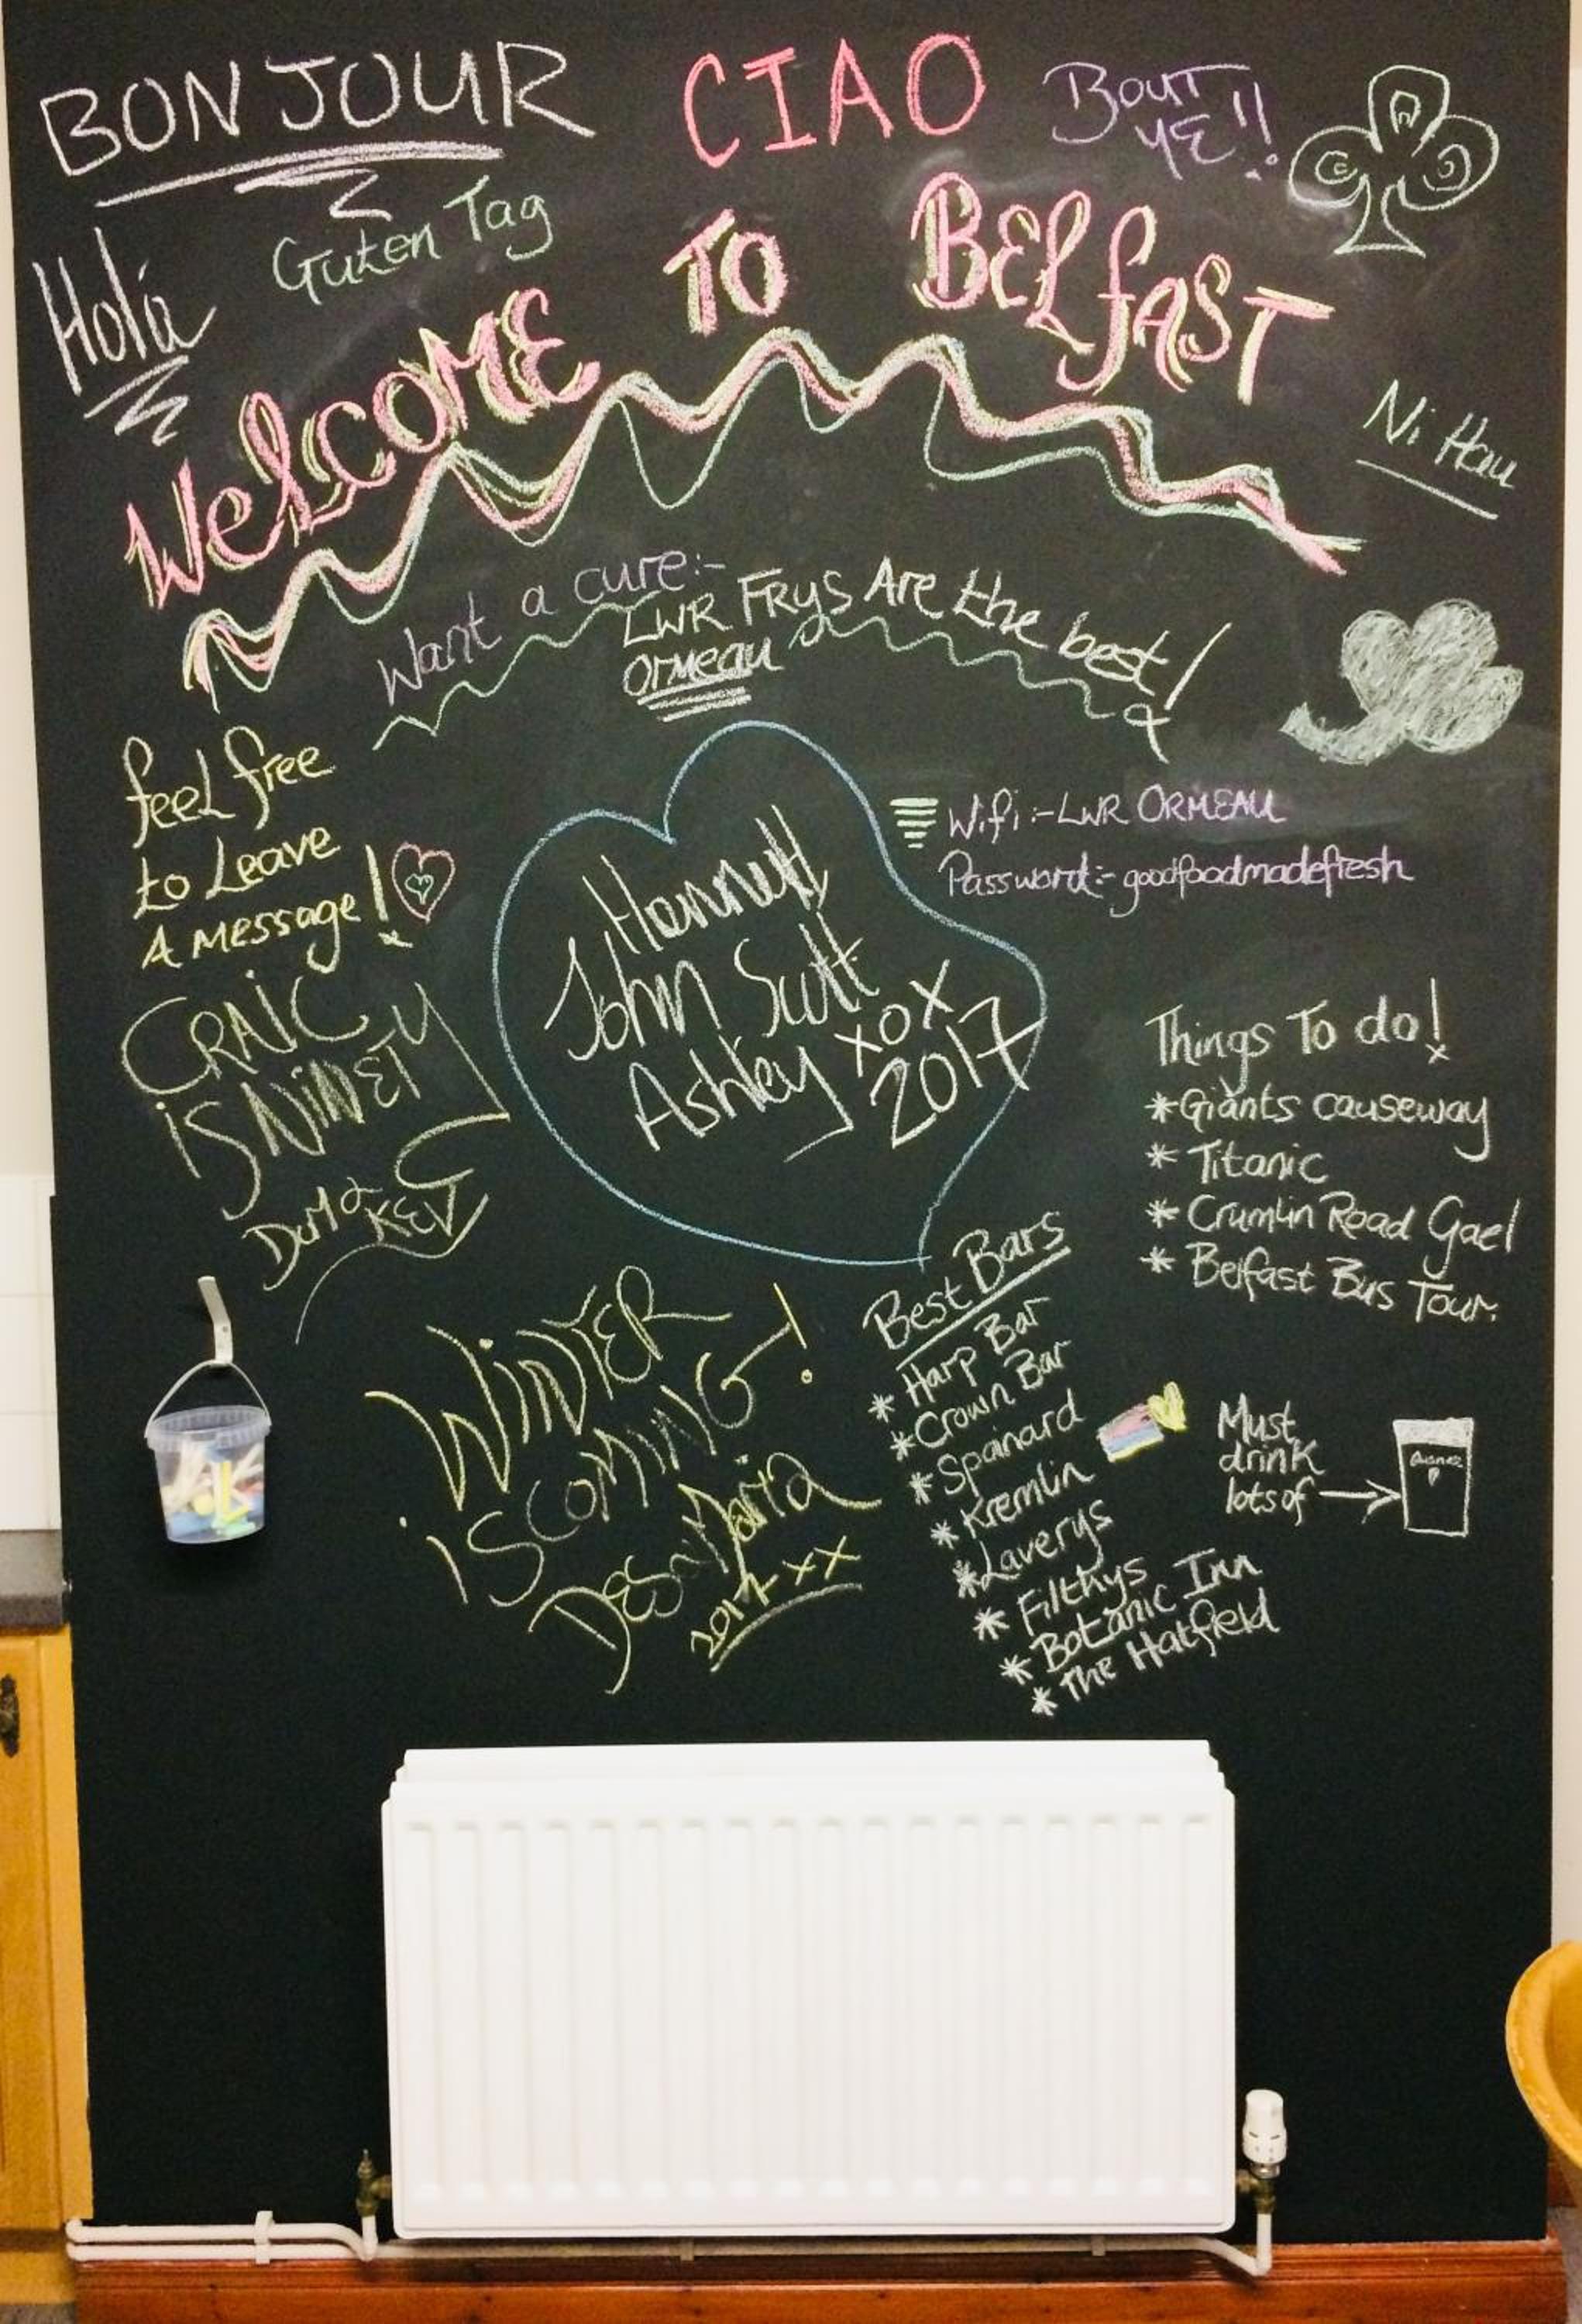 BONJOUR
CIAO
BOUT
YE!!
Guten Tag
Hola
WELCOME TO BELFAST
Ni Hau
Want a cure:-
LWR FRYS Are the best!
ORMEAU
feel free
to Leave
A Message!
Wifi:-LWR ORMEAU
Password:-goodfoodmadefresh
John Scott
Ashley XOX
2017
CRAIC
iS NiNETY
KEV
Things To do!
*Giants causeway
* Titanic
* Crumlin Road Gael
* Belfast Bus Tour.
WiNTER
iS COMING!
DES Maria
2017 XX
Best Bars
* Harp Bar
* Crown Bar
* Spanard
* Kremlin
* Laverys
* Filthys
* Botanic Inn
* The Hatfield
Must
drink
lots of